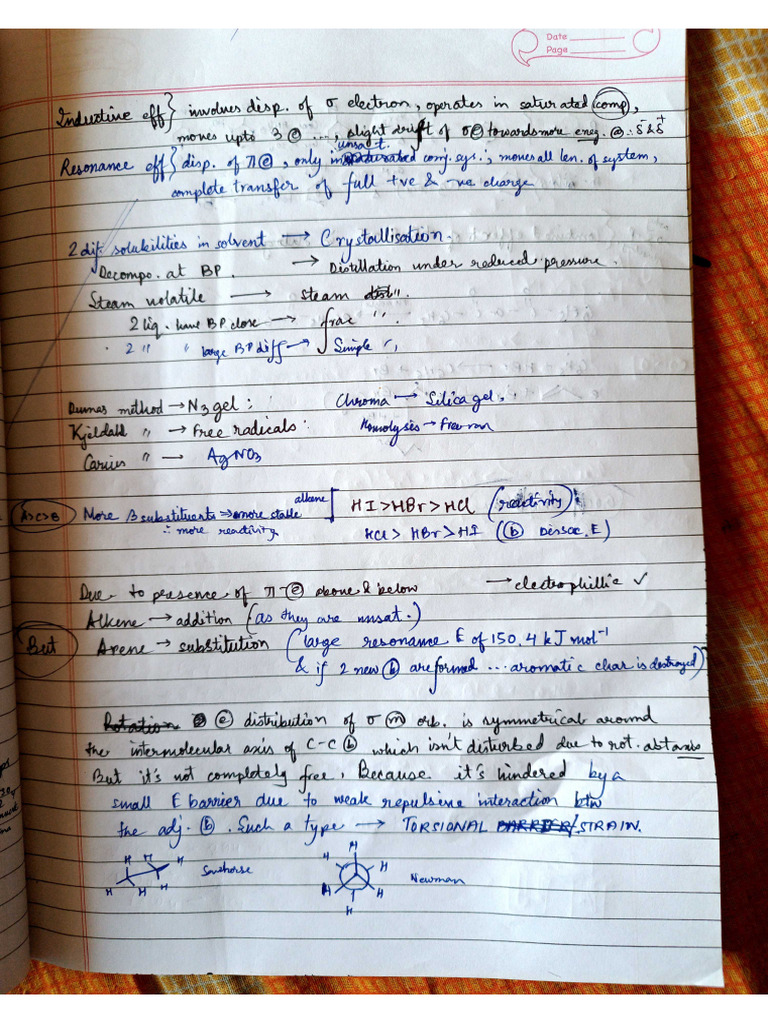 Date
Page
Inductive eff} involves disp. of σ electron, operates in saturated (comp),
moves upto 3 ⓔ ..., slight drift of σⓔ towards more eneg. @ ∴ δ⁻ & δ⁺
unsat.
Resonance eff} disp. of πⓔ, only in conj. sys.; moves all len. of system,
complete transfer of full +ve & -ve charge
2 dif. solubilities in solvent → Crystallisation.
Decompo. at BP. → Distillation under reduced pressure.
Steam volatile → steam ".
2 liq. have BP close → frac ".
2 " " large BP diff → Simple "
Dumas method → N₂ gel; Chroma → Silica gel.
Kjeldahl " → Free radicals: Homolysis → Free
Carius " → AgNO3
A>C>B More β substituents → more stable alkene HI > HBr > HCl (reactivity)
∴ more reactivity HCl > HBr > HI (ⓑ Dissoc. E)
Due to presence of π-ⓔ above & below → electrophillic ✓
Alkene → addition (as they are unsat.)
But Arene → substitution (large resonance E of 150.4 kJ mol⁻¹
& if 2 new ⓑ are formed ... aromatic char is destroyed)
Rotation ⓔ distribution of σ ⓜ orb. is symmetrical around
the intermolecular axis of C-C ⓑ which isn't disturbed due to rot. abt axis
But it's not completely free, Because it's hindered by a
small E barrier due to weak repulsive interaction btw
the adj. ⓑ. Such a type → TORSIONAL BARRIER/STRAIN.
H H H H H H Sawhorse
H H H H H H Newman